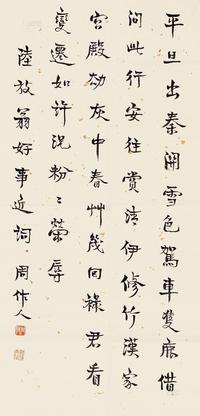 平旦出秦關雪色駕車雙鹿借
問此行安往賞清伊修竹漢家
宮殿劫灰中春艸幾回綠君看
變遷如許況紛〻榮辱
陸放翁好事近詞 周作人